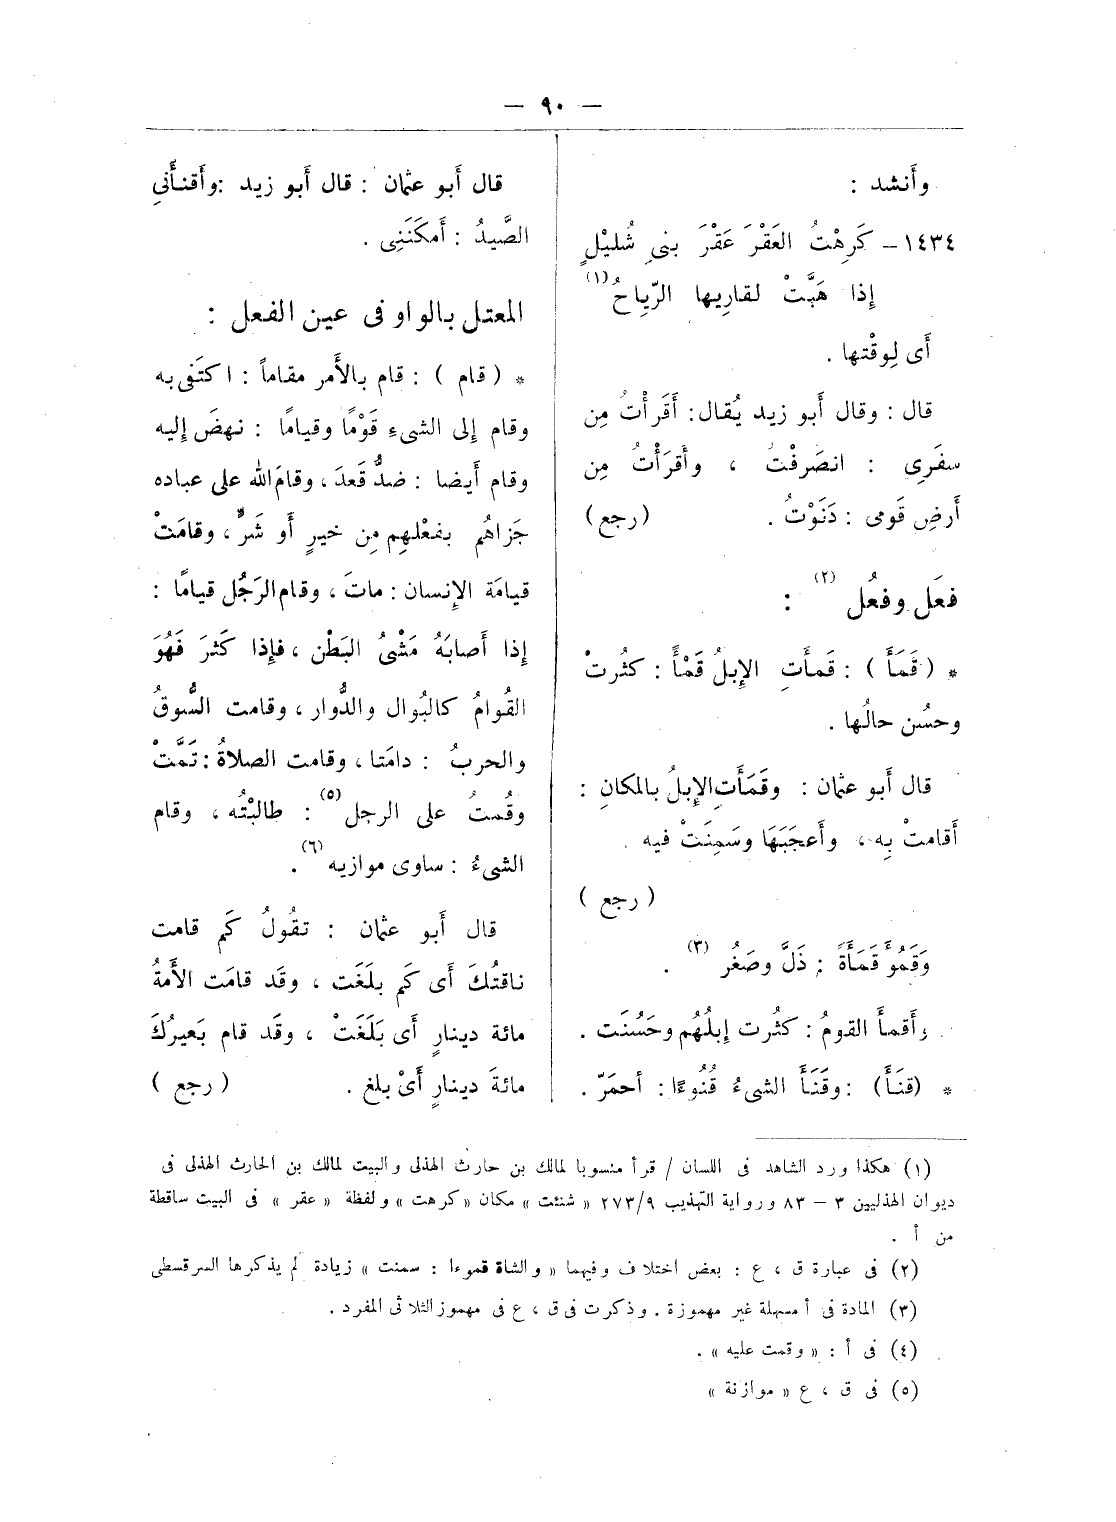 — ٩٠ —
وأَنشد :
١٤٣٤ – كَرِهْتُ العَقْرَ عَقْرَ بنىِ شُلَيْلٍ
إذا هَبَّتْ لقارِيها الرّياحُ (١)
أَى لِوقْتها .
قال : وقال أَبو زيد يُقال : أَقَرأْتُ مِن
سفَرِى : انصَرفْتُ ، وأَقرَأْتُ مِن
أَرضِ قَومى : دَنَوْتُ . (رجع)
فعَل وفعُل (٢) :
* (قَمَأَ) : قَمأَتِ الإِبلُ قَمْأً : كثُرتْ
وحسُن حالُها .
قال أَبو عثمان : وقَمَأَتِ الإِبلُ بالمكانِ :
أَقامتْ بِه ، وأَعجَبَهَا وسَمِنَتْ فيه .
(رجع)
وَقَمُؤَ قَمَأَةً : ذَلَّ وصَغُر (٣) .
وأَقمأَ القومُ : كثُرت إبلُهُم وحَسُنَت .
* (قنَأَ) : وقَنَأَ الشىءُ قُنُوءًا : أحمَرّ .
قال أَبو عثمان : قال أَبو زيد : وأَقنأَنىِ
الصَّيدُ : أَمكَنَنِى .
المعتل بالواو فى عين الفعل :
* (قام) : قام بالأَمر مقاماً : اكتَفى به
وقام إلى الشىءِ قَوْمًا وقيامًا : نهضَ إليه
وقام أَيضا : ضدُّ قَعدَ ، وقامَ الله على عباده
جَزاهُم بفعْلهِم مِن خيرٍ أَو شَرٍّ ، وقامَتْ
قيامَة الإِنسان : ماتَ ، وقام الرَجُل قيامًا :
إذا أَصابَهُ مَشْىُ البَطْن ، فإذا كَثرَ فَهُوَ
القُوامُ كالبُوال والدُّوار ، وقامت السُّوقُ
والحربُ : دامَتا ، وقامت الصلاةُ : تَمَّتْ
وقُمتُ على الرجل (٥) : طالبْتُه ، وقام
الشىءُ : ساوى موازيه (٦) .
قال أَبو عثمان : تقُولُ كَم قامت
ناقتُكَ أَى كم بلَغَت ، وقَد قامَت الأَمةُ
مائة دينارٍ أَى بَلَغَتْ ، وقَد قام بَعيرُكَ
مائةَ دينارٍ أَىْ بلغ . (رجع)
(١) هكذا ورد الشاهد فى اللسان / قرأ منسوبا لمالك بن حارث الهذلى والبيت لمالك بن الحارث الهذلى فى
ديوان الهذليين ٣ – ٨٣ ورواية التهذيب ٢٧٣/٩ « شنئت » مكان « كرهت » ولفظة « عقر » فى البيت ساقطة
من أ .
(٢) فى عبارة ق ، ع : بعض اختلاف وفيهما « والشاة قموءا : سمنت » زيادة لم يذكرها السرقسطى
(٣) المادة فى أ مسهلة غير مهموزة . وذكرت فى ق ، ع فى مهموز الثلاثى المفرد .
(٤) فى أ : « وقمت عليه » .
(٥) فى ق ، ع « موازنة »